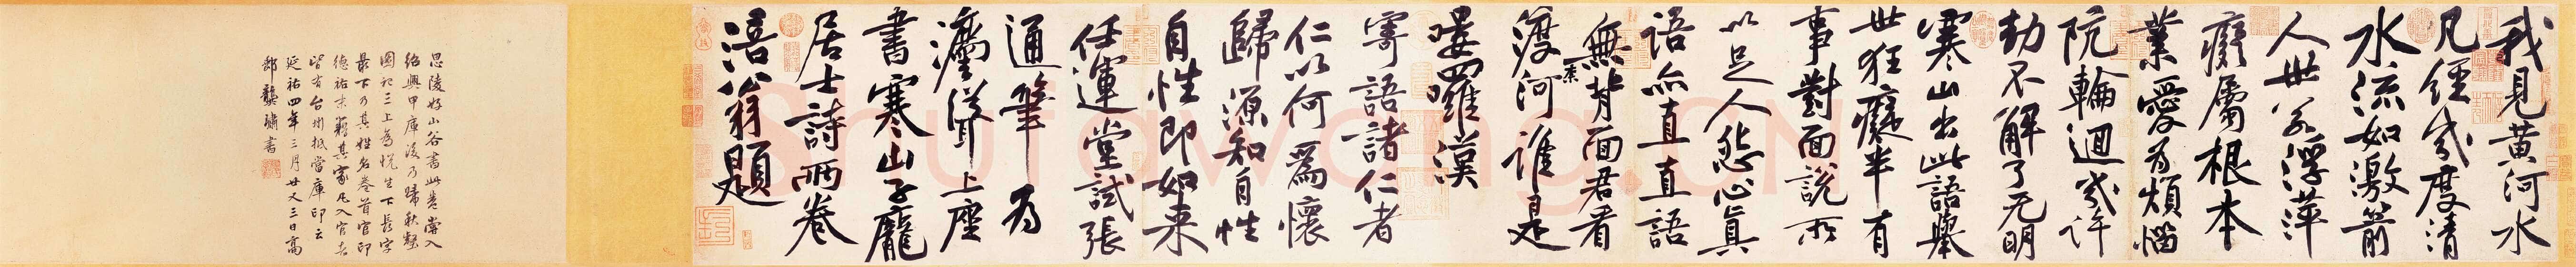 我見黃河水
凡經幾度清
水流如激箭
人世若浮萍
癡屬根本
業愛為煩惱
阮輪迴幾許
劫不解了无明
寒山出此語舉
世狂癡半有
事對面說所
以足人怨心真
語亦直直語
無背面君看
奈
渡河誰是
嘍羅漢
寄語諸仁者
仁以何為懷
歸源知自性
自性即如来
任運堂試張
通筆為
灋聳上座
書寒山子龐
居士詩兩卷
涪翁題
思陵好山谷書此卷嘗入
紹興甲庫後乃歸秋壑
圖記三上為悅生下長字
最下乃其姓名卷首官印
德祐末籍其家凡入官者
皆有台州抵當庫印云
延祐四年三月廿又三日高
郵龔璛書
shufawang.CN